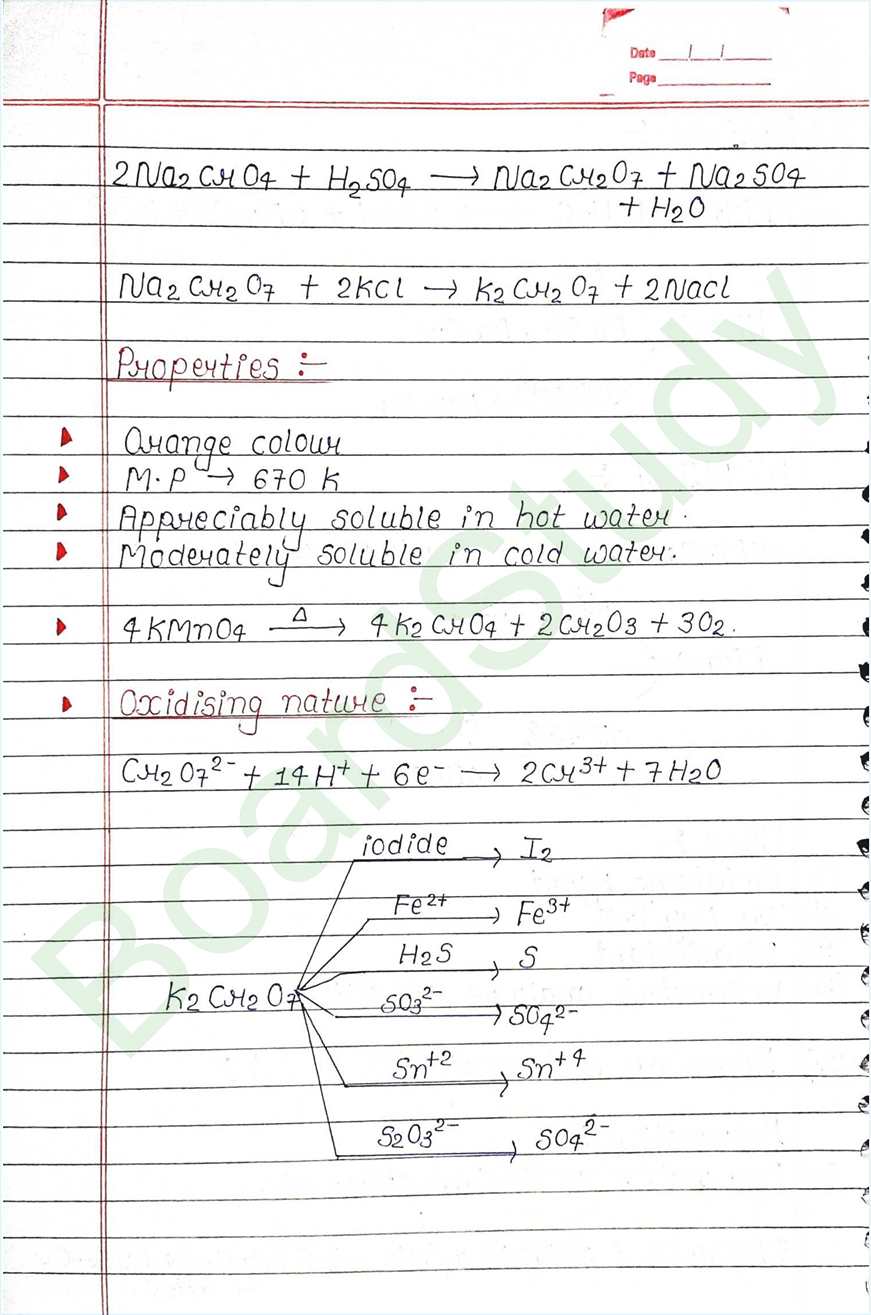 Date __/__/____
Page ________
2Na2CrO4 + H2SO4 → Na2Cr2O7 + Na2SO4
+ H2O
Na2Cr2O7 + 2KCl → K2Cr2O7 + 2NaCl
Properties :-
Orange colour
M.P → 670 K
Appreciably soluble in hot water.
Moderately soluble in cold water.
4KMnO4 —Δ→ 4K2CrO4 + 2Cr2O3 + 3O2.
Oxidising nature :-
Cr2O7²⁻ + 14H⁺ + 6e⁻ → 2Cr³⁺ + 7H2O
iodide → I2
Fe²⁺ → Fe³⁺
H2S → S
K2Cr2O7
SO3²⁻ → SO4²⁻
Sn⁺² → Sn⁺⁴
S2O3²⁻ → SO4²⁻
BoardStudy